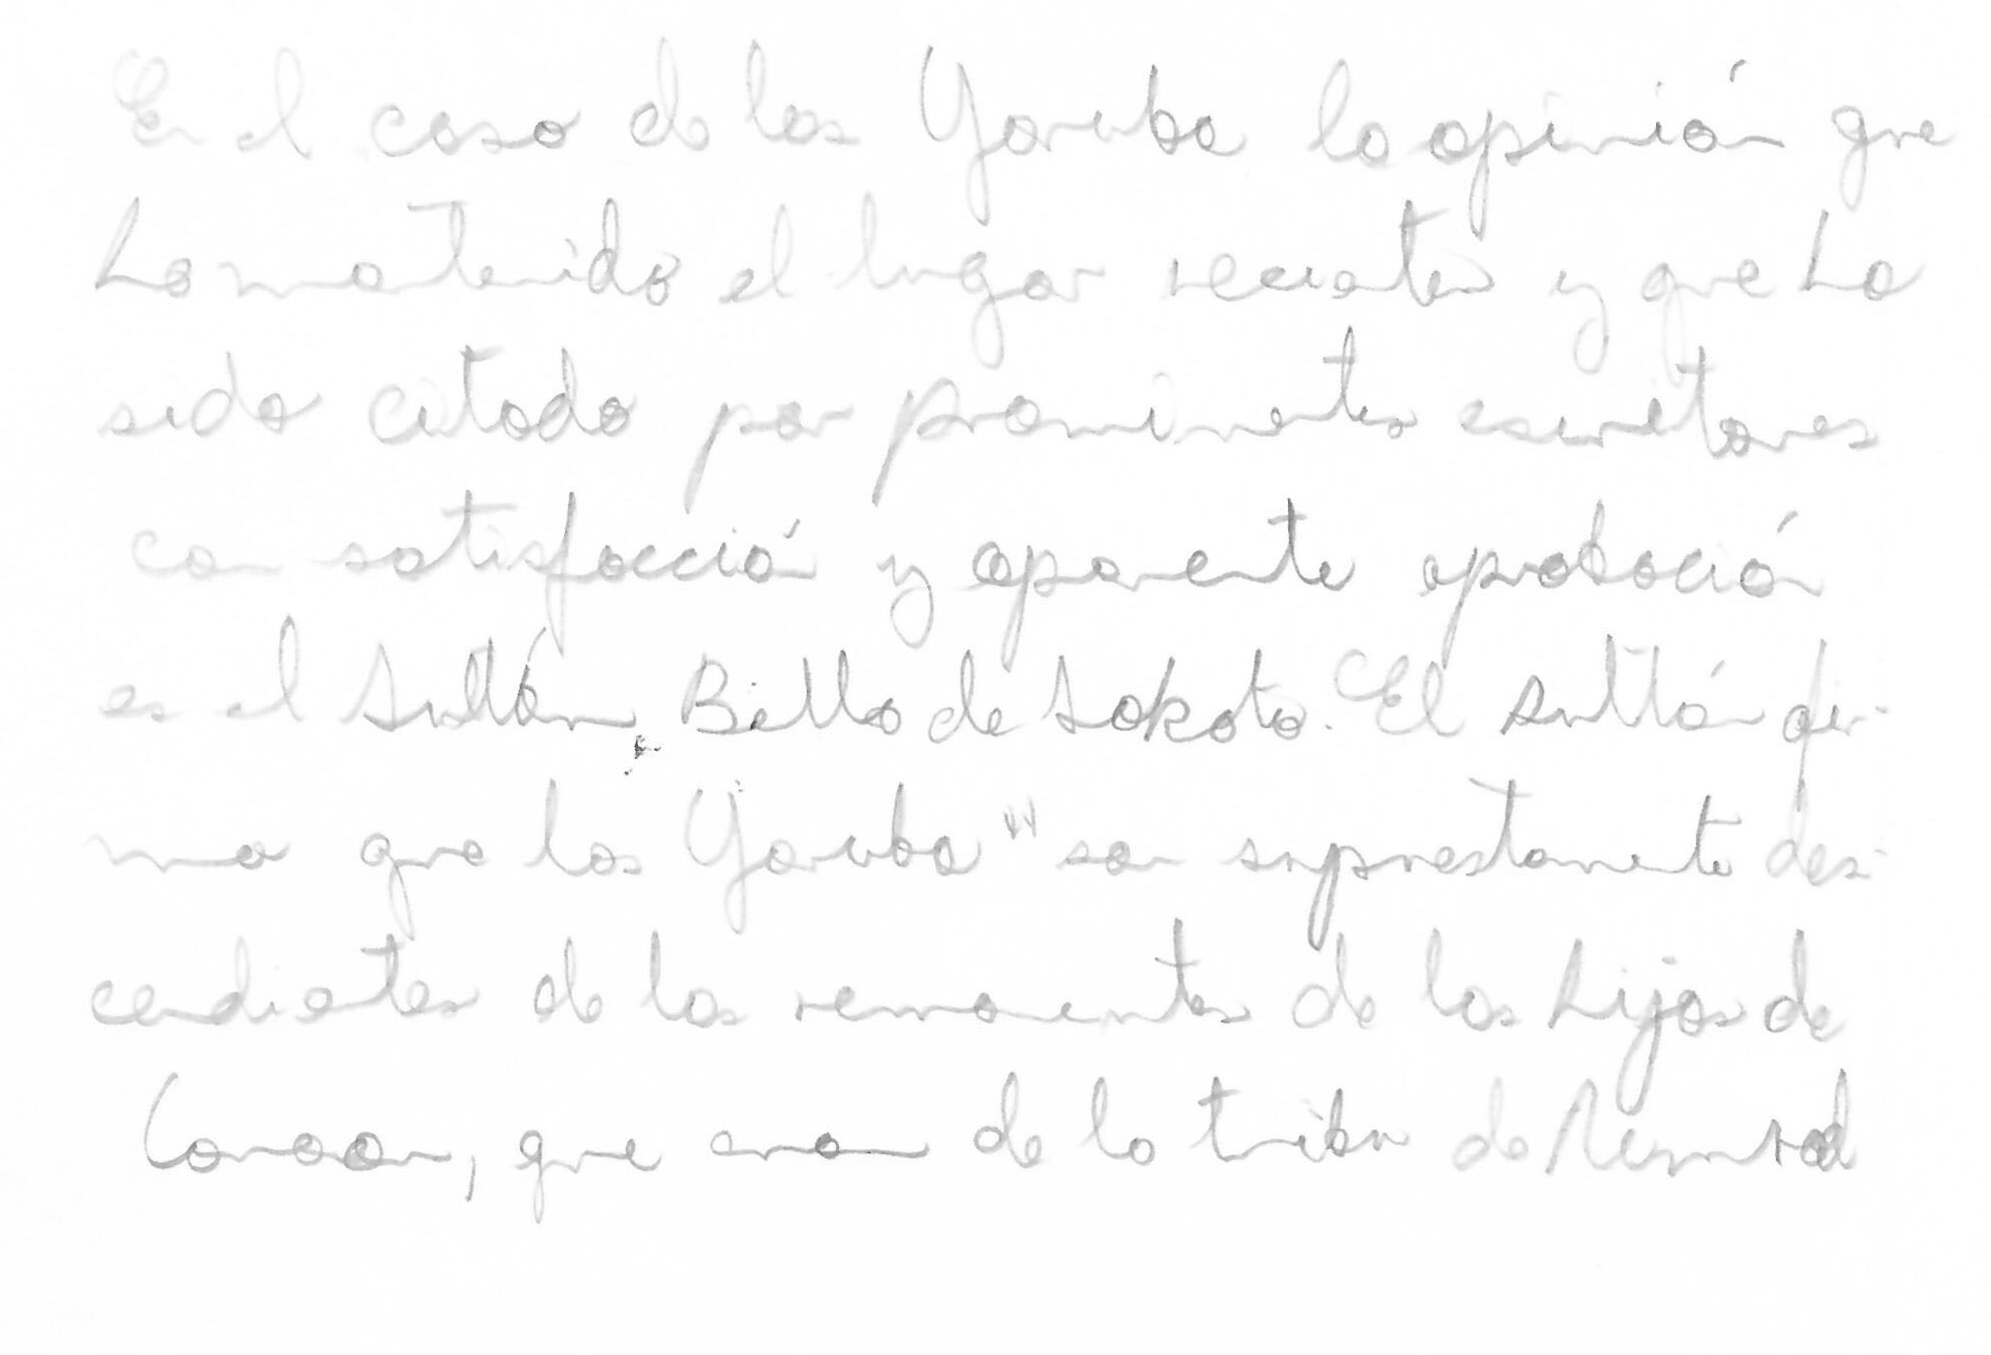 En el caso de los Yoruba la opinión que
ha matenido el lugar reciente y que ha
sido citado por prominentes escritores
con satisfacción y aparente aprobación
es el Sultán Bello de Sokoto. El Sultán afir-
ma que los Yoruba "son supuestamente des-
cendientes de los remanentes de los hijos de
Canaan, que eran de la tribu de Nimrod